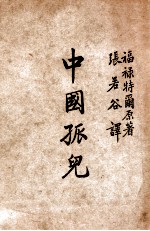 福祿特爾原著
張若谷譯
中國孤兒